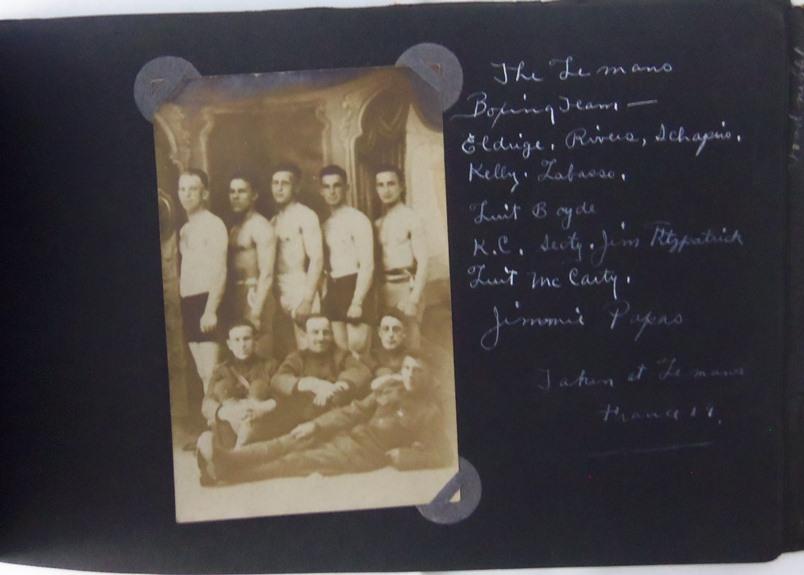 The Le mans
Boxing Team —
Eldrige, Rivers, Schapiro,
Kelly, Labasso,
Luit Boyde
K.C. Secty. Jim Fitzpatrick
Luit Mc Carty.
Jimmie Papas
Taken at Le mans
France 19.